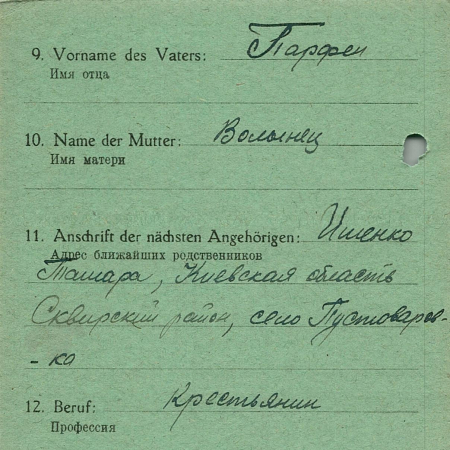 9. Vorname des Vaters: Парфен
Имя отца
10. Name der Mutter: Волынец
Имя матери
11. Anschrift der nächsten Angehörigen: Ищенко
Адрес ближайших родственников
Тамара, Киевская область
Сквирский район, село Пустоваров-
- ка
12. Beruf: Крестьянин
Профессия